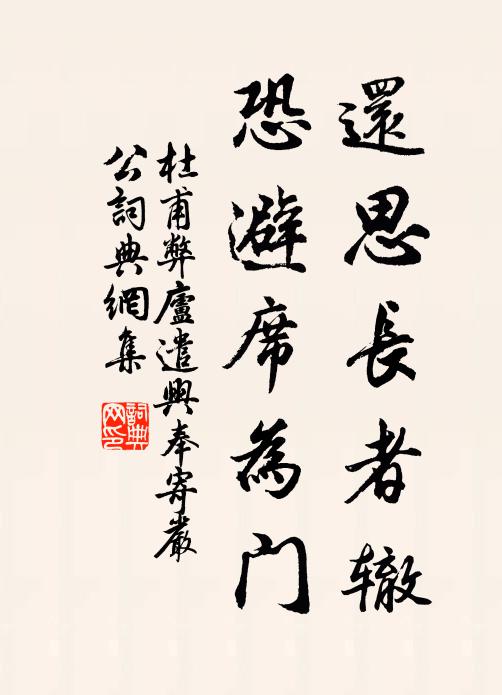 還思長者辙
恐避席為門
杜甫弊廬遣興奉寄嚴
公詞典網集
詞典
网印